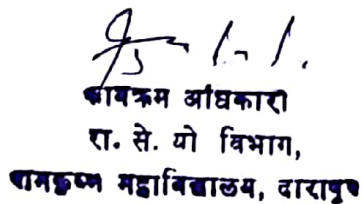 कार्यक्रम अधिकारी
रा. से. यो विभाग,
रामकृष्ण महाविद्यालय, दारापूर